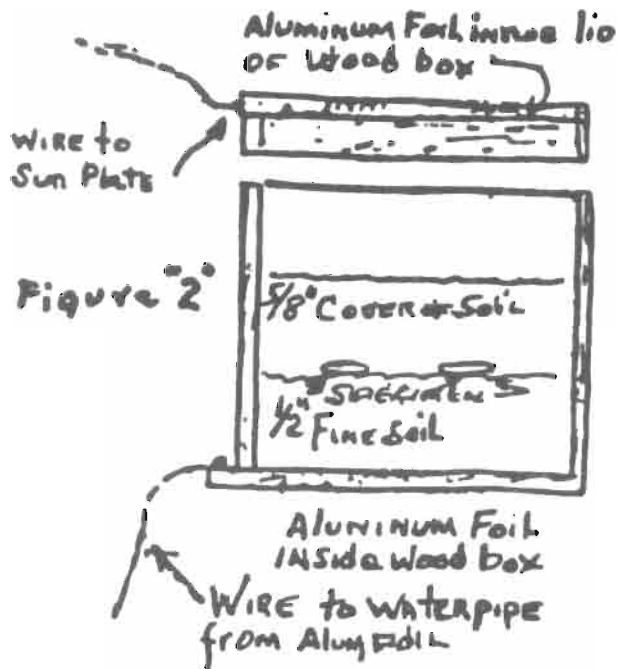 Aluminum Foil inside lid
OF Wood box
WIRE to
Sun Plate
Figure "2"
5/8" COVER of Soil
SPECIMEN
1/2" FINE Soil
ALUNINUM FOIL
INSIDE Wood box
WIRE to WATERPIPE
from Alum Foil